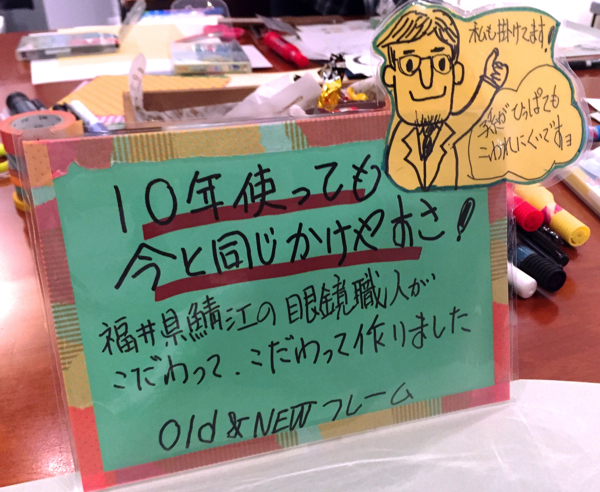 10年使っても
今と同じかけやすさ!
福井県鯖江の眼鏡職人が
こだわって、こだわって作りました
Old & NEWフレーム
私も掛けてます!
孫がひっぱても
こわれにくいですヨ